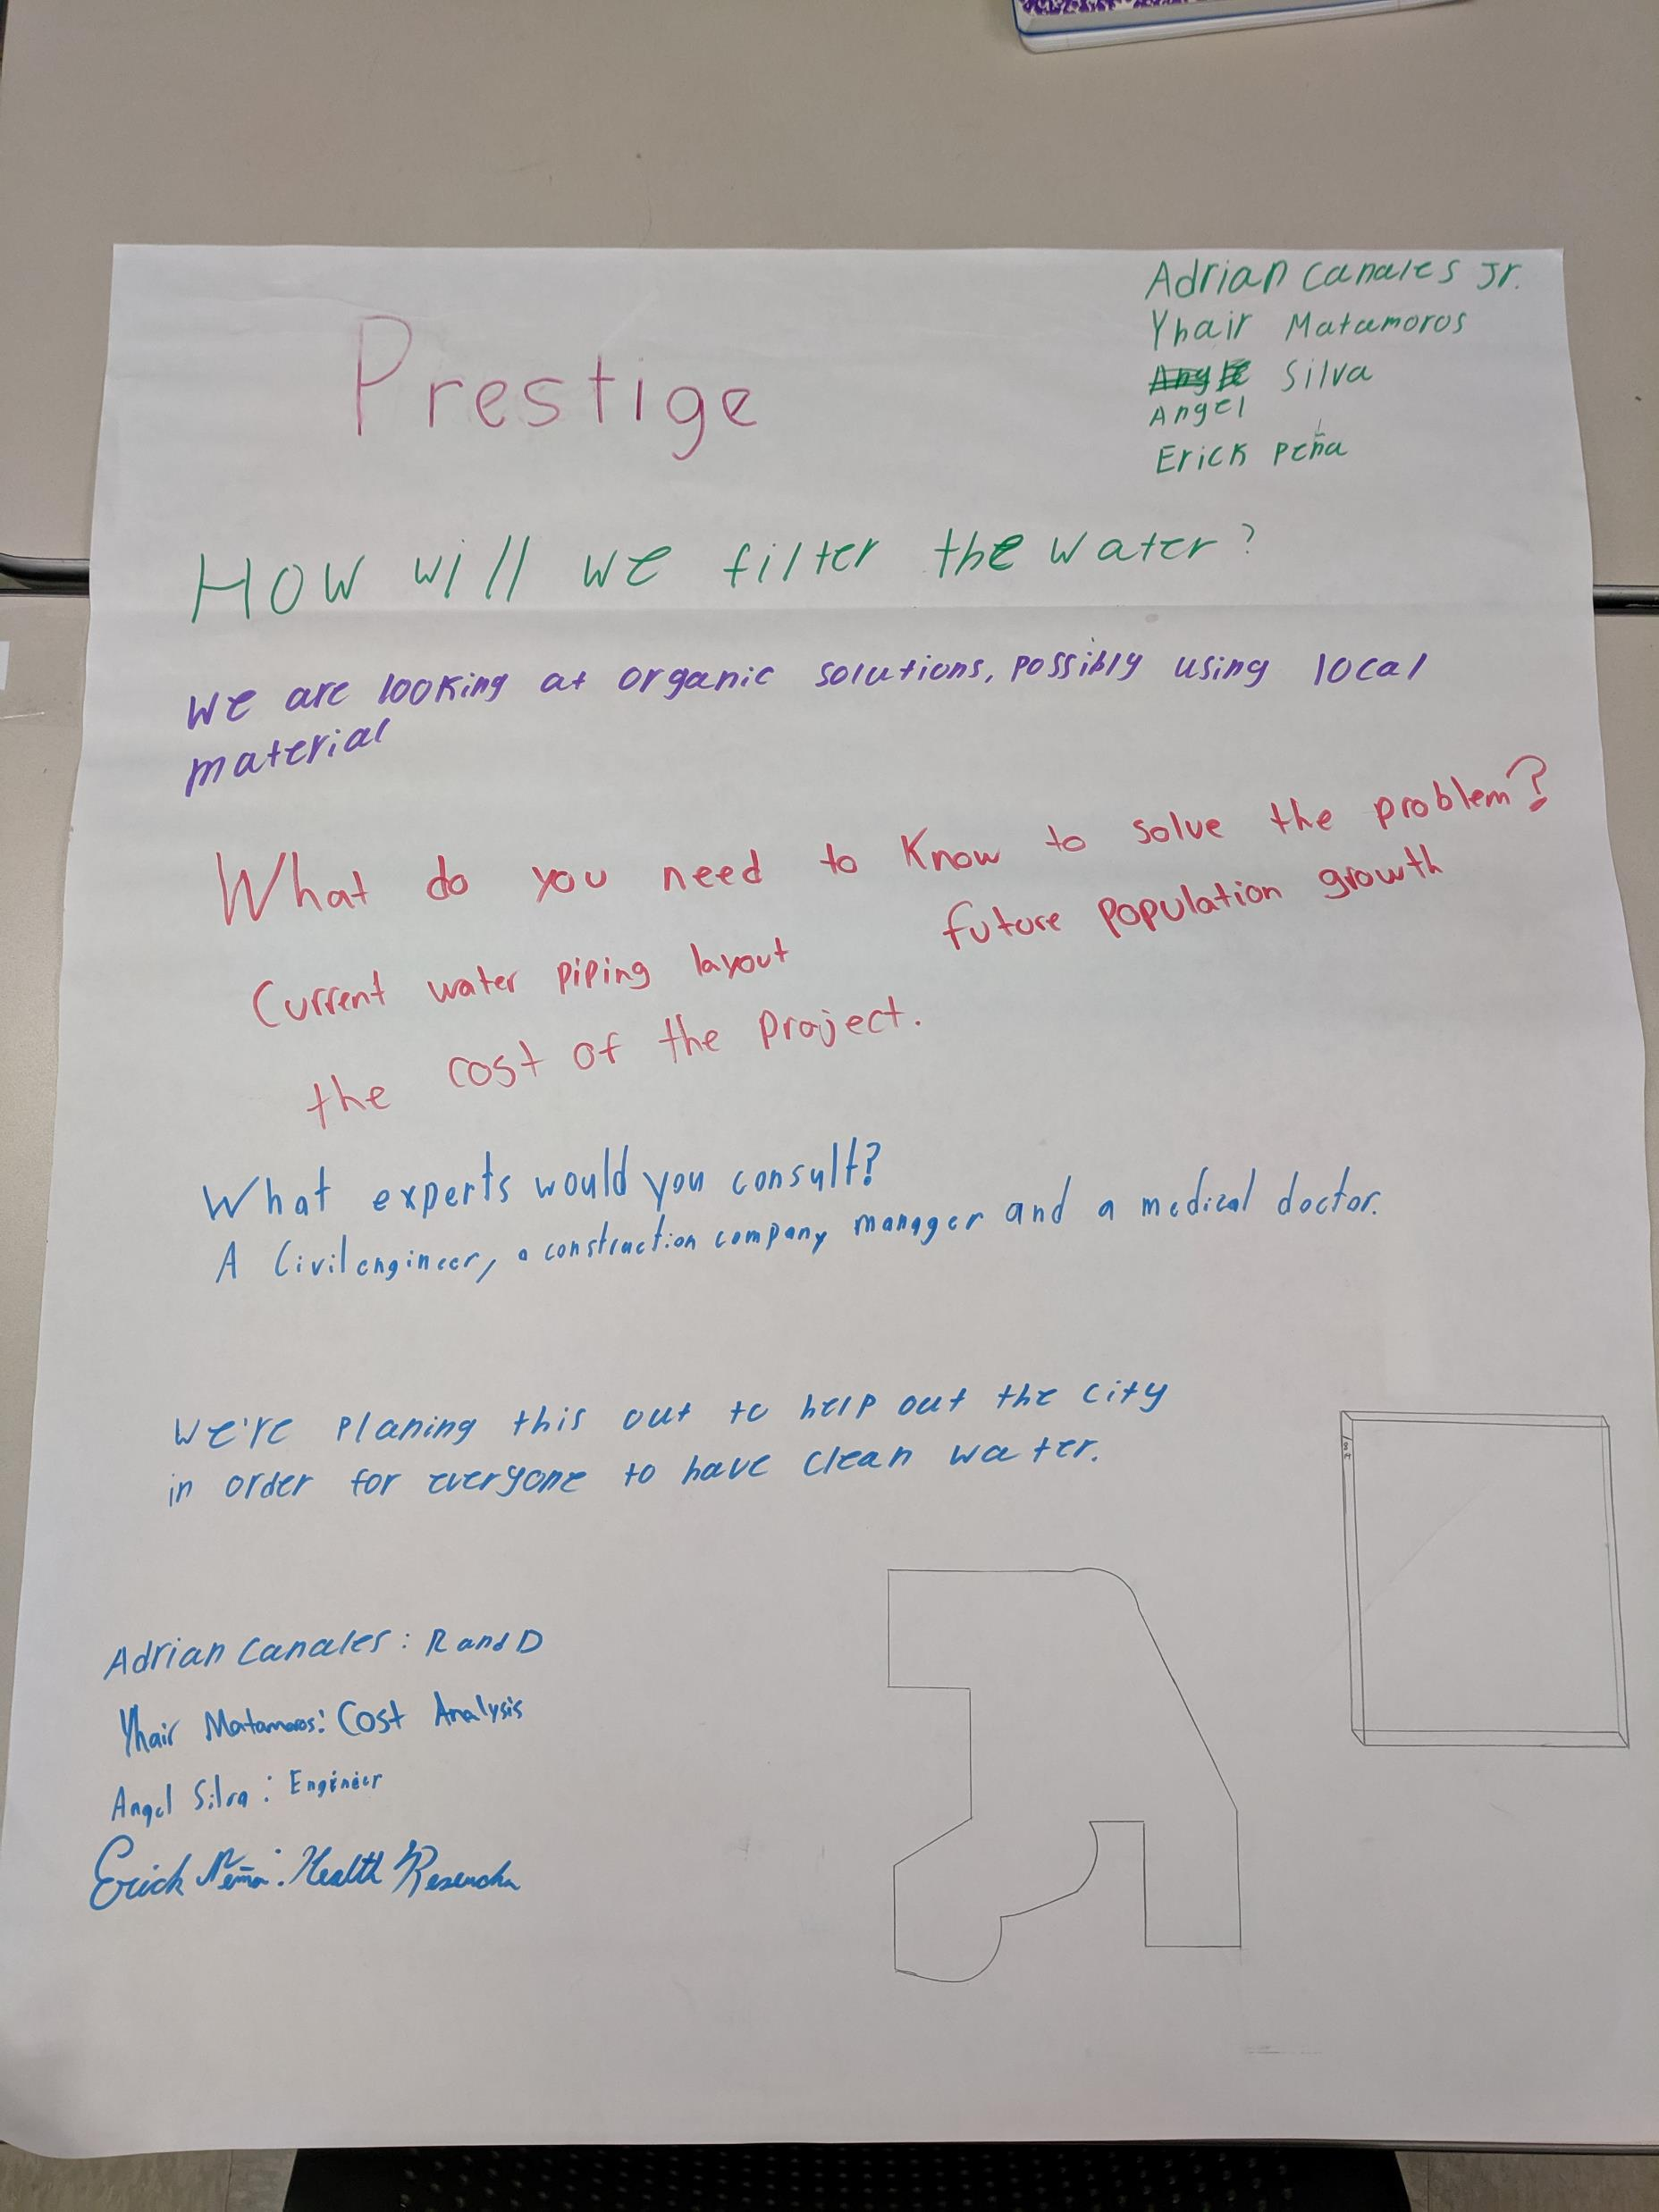 Prestige
Adrian Canales Jr.
Yhair Matamoros
Silva
Angel
Erick Peña
How will we filter the water?
we are looking at organic solutions, possibly using local
material
What do you need to know to solve the problem?
Current water piping layout future population growth
the cost of the project.
What experts would you consult?
A Civil engineer, a construction company manager and a medical doctor.
We're planing this out to help out the city
in order for everyone to have clean water.
Adrian Canales: R and D
Yhair Matamoros: Cost Analysis
Angel Silva: Engineer
Erick Peña: Health